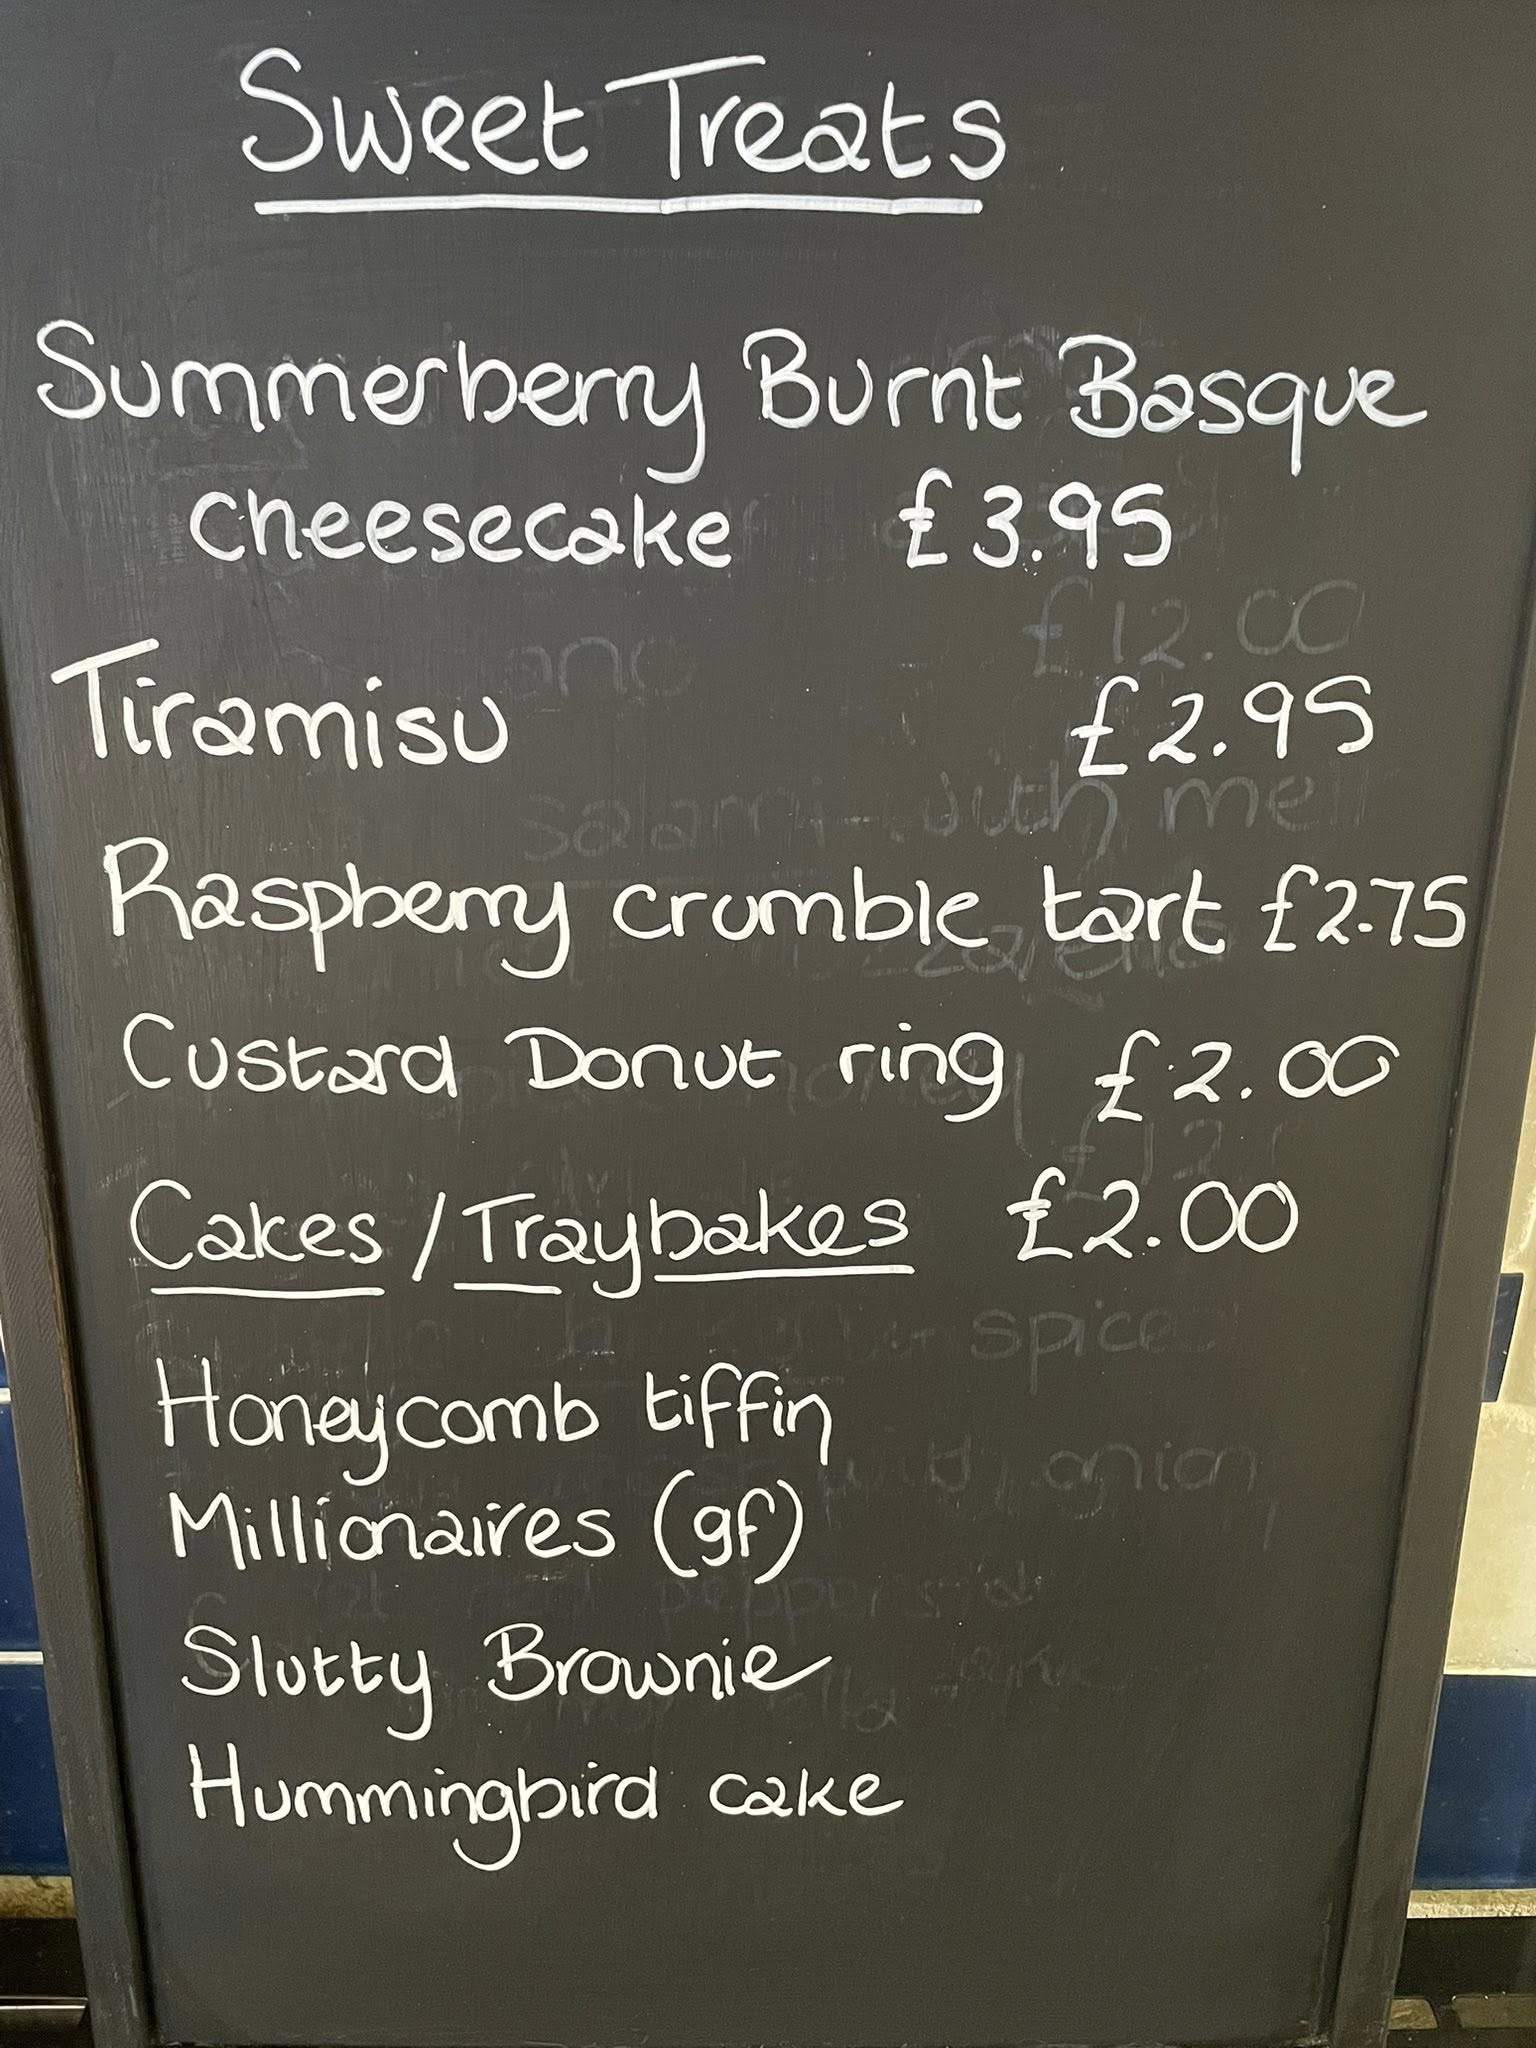 Sweet Treats
Summerberry Burnt Basque
cheesecake £3.95
£12.00
Tiramisu £2.95
salami with
Raspberry crumble tart £2.75
Custard Donut ring £2.00
Cakes / Traybakes £2.00
Honeycomb tiffin
onion
Millionaires (gf)
Slutty Brownie
Hummingbird cake